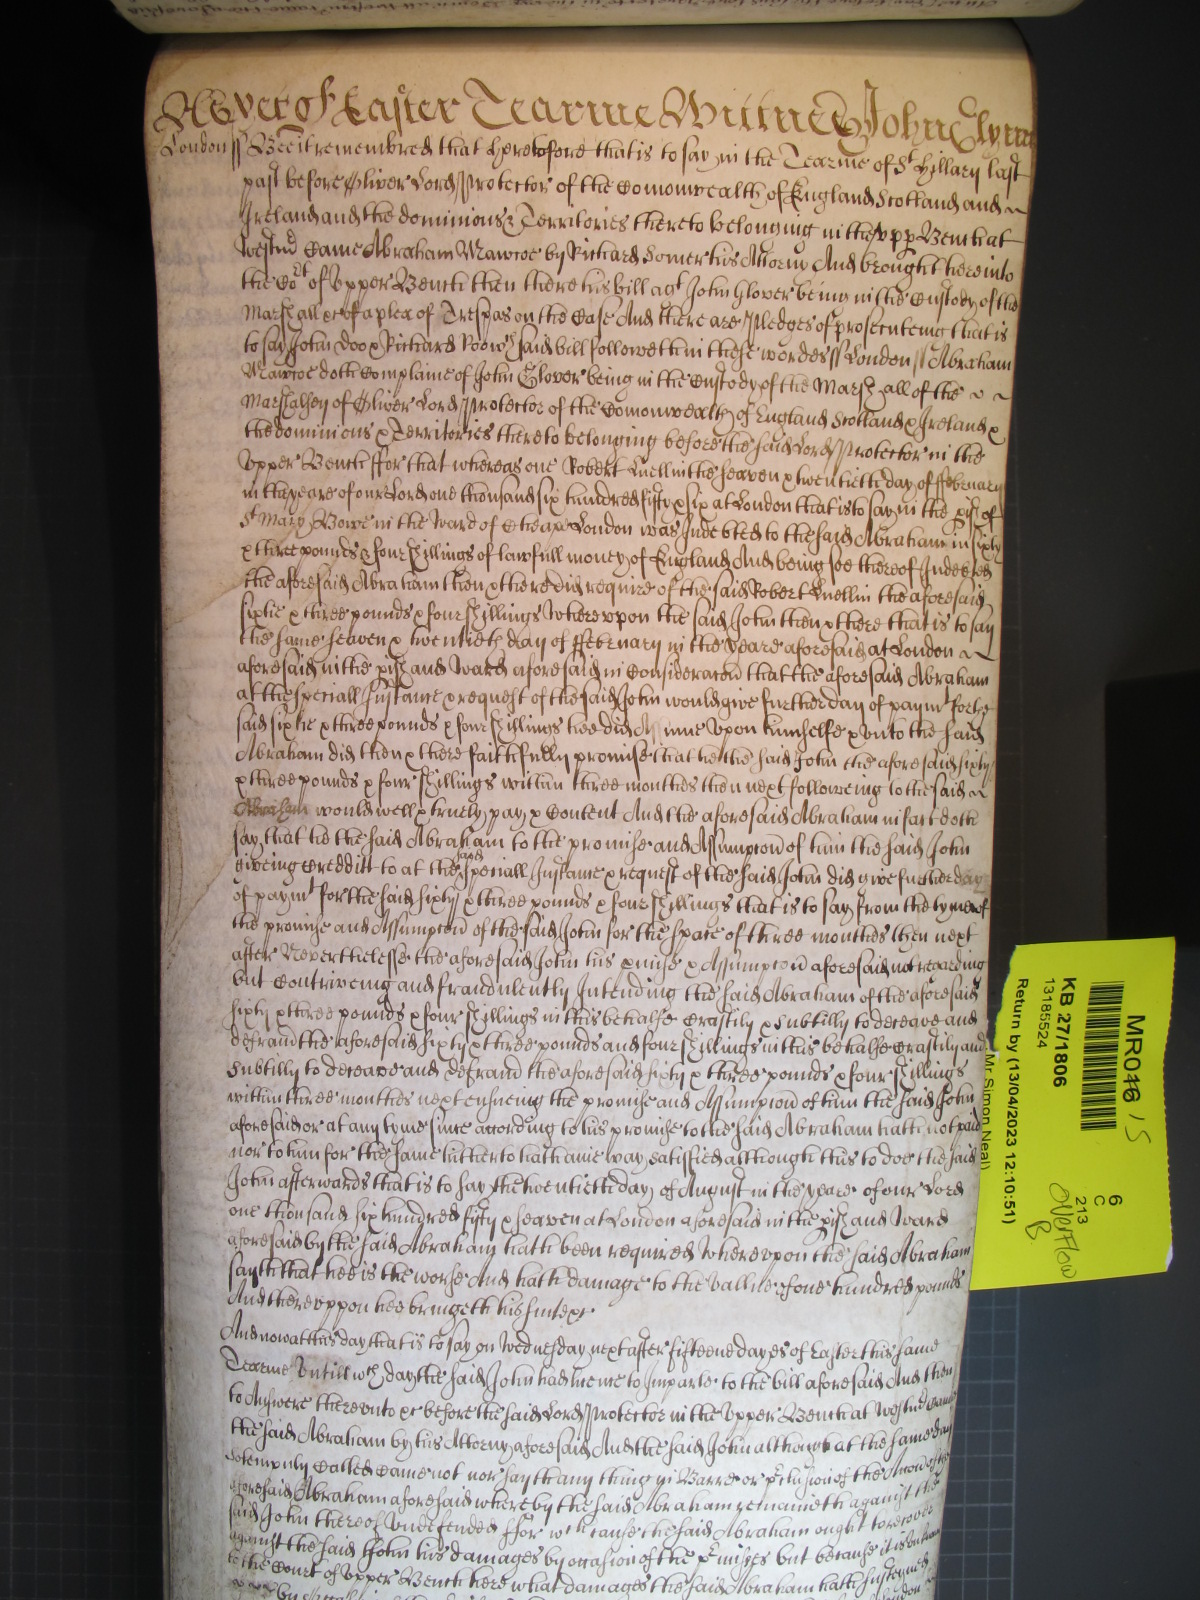 Yet of Easter Tearme Wittnes John Glynne
London ss Bee it remembred that heretofore that is to say in the Tearme of St Hillary last
past before Oliver Lord Protector of the Comonwealth of England Scotland and
Ireland and the dominions & Territories thereto belonging in the upp Bench at
Westmr Came Abraham Mawcoe by Richard Somer his Attorny And brought here into
the Cort of Upper Bench then there his bill agt John Glover being in the Custody of the
Marshall &c of a plea of Trespas on the Case And there are Pledges of prosecuteing that is
to say John Doo & Richard Roo wch said bill followeth in these wordes ss London ss Abraham
Mawcoe doth Complaine of John Glover being in the Custody of the Marshall of the
Marshalsey of Oliver Lord Protector of the Comonwealth of England Scotland & Ireland &
the dominions & Territories thereto belonging before the said Lord Protector in the
Upper Bench ffor that whereas one Robert Luellin the seaven & twentieth day of ffebruary
in the yeare of our Lord one thousand six hundred fifty & six at London that is to say in the pish of
St Mary Bowe in the Ward of Cheape London was Indebted to the said Abraham in sixty
& three pounds & four shillings of lawfull money of England And being soe thereof Indebted
the aforesaid Abraham then & there did require of the said Robert Luellin the aforesaid
sixtie & three pounds & four shillings Whereupon the said John then & there that is to say
the same seaven & twentieth day of ffebruary in the yeare aforesaid at London
aforesaid in the pish and Ward aforesaid in Consideracon that the aforesaid Abraham
at the speciall Instance & request of the said John would give further day of paymt for the
said sixtie & three pounds & four shillings hee did Assume upon himselfe & unto the said
Abraham did then & there faithfully promise that he the said John the aforesaid sixty
& three pounds & four shillings within three monthes then next followeing to the said
Abraham would well & truely pay & Content And the aforesaid Abraham in fact doth
say that he the said Abraham to the promise and Assumpcon of him the said John
giveing Creditt to at the said speciall Instance & request of the said John did give further day
of paymt for the said sixty & three pounds & four shillings that is to say from the tyme of
the promise and Assumpcon of the said John for the space of three monthes then next
after Neverthelesse the aforesaid John his pmise & Assumpcon aforesaid not regarding
but Contriveing and fraudulently Intending the said Abraham of the aforesaid
sixty & three pounds & four shillings in this behalfe Craftily & Subtilly to deceave and
defraud the aforesaid sixty & three pounds and four shillings in this behalfe Craftily and
Subtilly to deceave and defraud the aforesaid sixty & three pounds & four shillings
within three monthes next ensueing the promise and Assumpcon of him the said John
aforesaid or at any tyme since according to his promise to the said Abraham hath not paid
nor to him for the same hitherto hath anie way satisfied although this to doe the said
John afterwards that is to say the twentieth day of August in the yeare of our Lord
one thousand six hundred fifty & seaven at London aforesaid in the pish and Ward
aforesaid by the said Abraham hath been required Whereupon the said Abraham
saith that hee is the worse And hath damage to the Vallue of one hundred pounds
And thereuppon hee bringeth his suite &c
And now at this day that is to say on Wednesday next after fifteene dayes of Easter this same
Tearme Untill wch day the said John had licence to Imparle to the bill aforesaid And then
to Answere thereunto &c before the said Lord Protector in the Upper Bench at Westmr Came
the said Abraham by his Attorny aforesaid And the said John although at the same day
solempnly Called Came not nor sayth any thing in Barre or pclusion of the Accon of the
aforesaid Abraham aforesaid whereby the said Abraham remaineth against the
said John thereof Undefended ffor wch cause the said Abraham ought to recover
against the said John his damages by occasion of the pmises but because it is unknown
to the Court of Upper Bench here what damages the said Abraham hath susteyned
MR046 / S
KB 27/1806
13185524
Return by (13/04/2023 12:10:51)
Mr Simon Neal)
6
C
213
overflow
B.